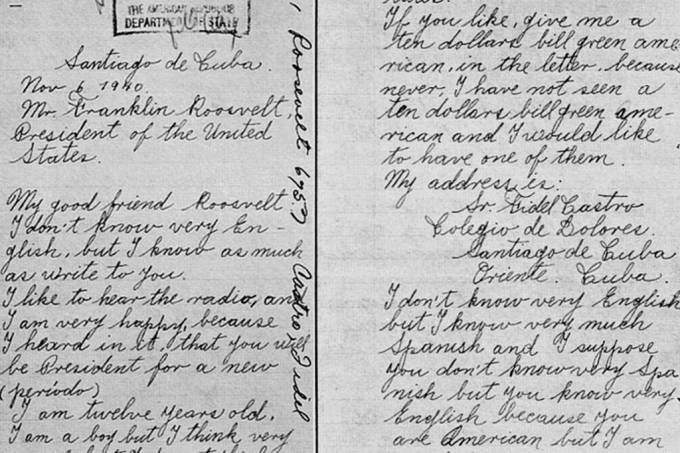 THE AMERICAN REPUBLICS
DEPARTMENT OF STATE
Santiago de Cuba.
Nov 6 1940.
Mr. Franklin Roosvelt,
President of the United
States.
My good friend Roosvelt
I don't know very En-
glish, but I know as much
as write to you.
I like to hear the radio, and
I am very happy, because
I heard in it, that you will
be President for a new
(periodo)
I am twelve years old.
I am a boy but I think very
Roosevelt
Castro, Fidel
If you like, give me a
ten dollars bill green ame-
rican, in the letter, because
never, I have not seen a
ten dollars bill green ame-
rican and I would like
to have one of them.
My address is:
Sr. Fidel Castro
Colegio de Dolores.
Santiago de Cuba
Oriente. Cuba.
I don't know very English
but I know very much
Spanish and I suppose
you don't know very Spa
nish but you know very
English because you
are American but I am